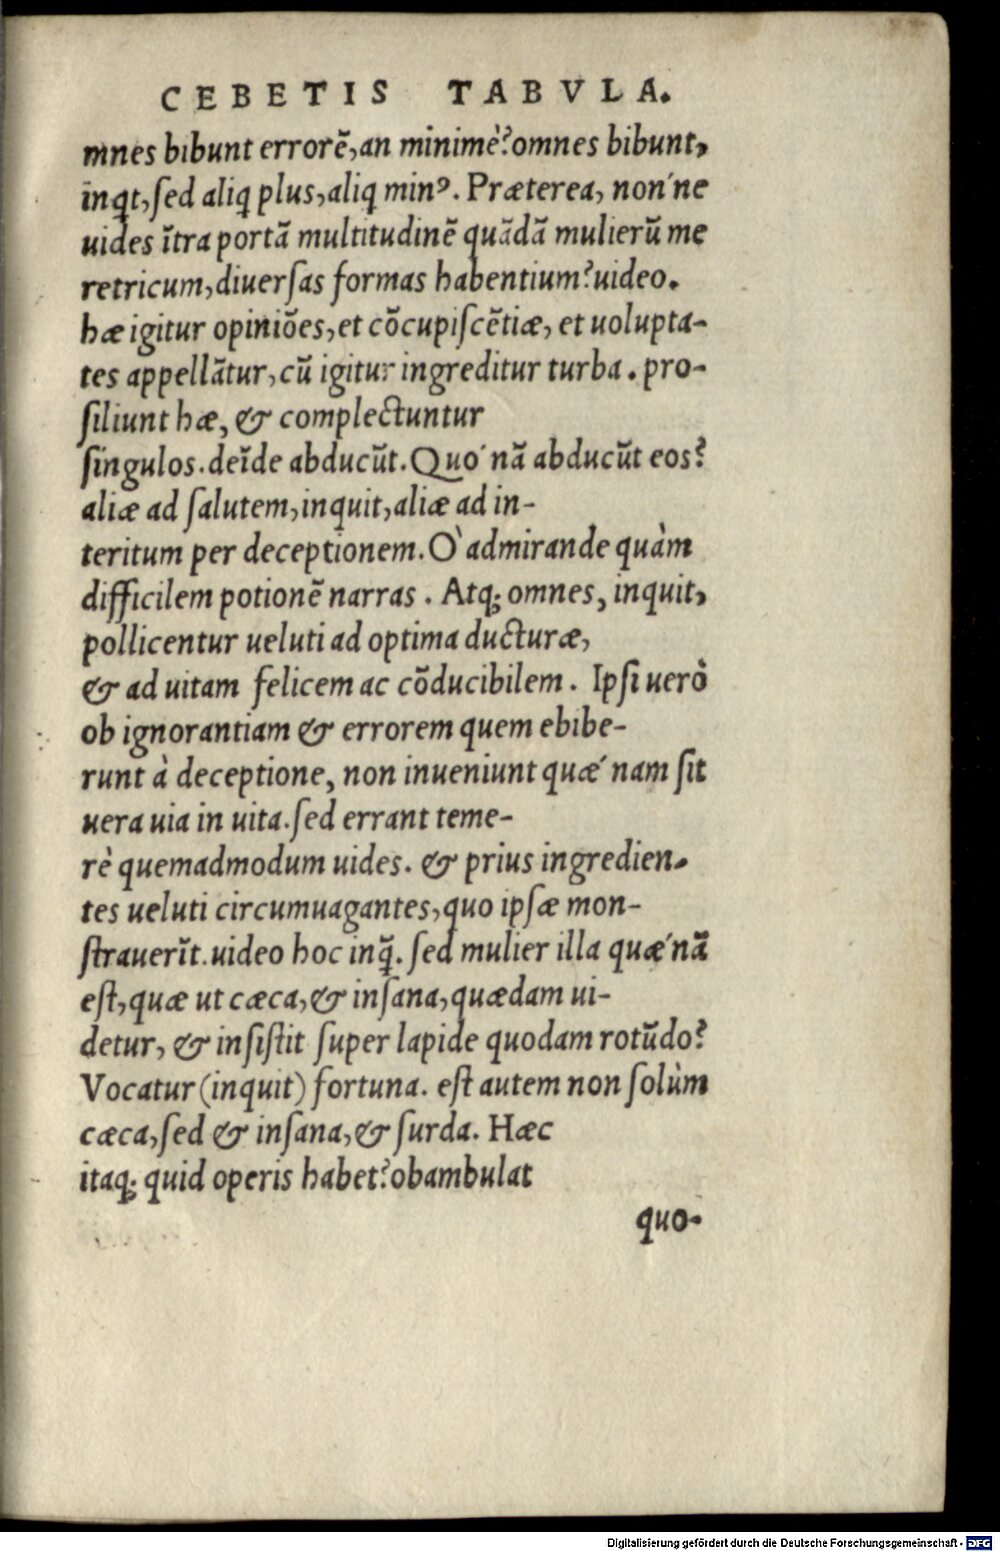 CEBETIS TABVLA.
mnes bibunt errorē, an minimè? omnes bibunt,
inqt, ſed aliq plus, aliq minꝰ. Præterea, non'ne
uides ītra portā multitudinē quādā mulierū me
retricum, diuerſas formas habentium? uideo.
hæ igitur opiniōes, et cōcupiſcētiæ, et uolupta-
tes appellātur, cū igitur ingreditur turba. pro-
ſiliunt hæ, & complectuntur
ſingulos. deīde abducūt. Quo' nā abducūt eos?
aliæ ad ſalutem, inquit, aliæ ad in-
teritum per deceptionem. O` admirande quàm
difficilem potionē narras. Atq; omnes, inquit,
pollicentur ueluti ad optima ducturæ,
& ad uitam felicem ac cōducibilem. Ipſi uerò
ob ignorantiam & errorem quem ebibe-
runt à deceptione, non inueniunt quæ' nam ſit
uera uia in uita. ſed errant teme-
rè quemadmodum uides. & prius ingredien-
tes ueluti circumuagantes, quo ipſæ mon-
ſtrauerīt. uideo hoc inq̄. ſed mulier illa quæ' nā
eſt, quæ ut cæca, & inſana, quædam ui-
detur, & inſiſtit ſuper lapide quodam rotūdo?
Vocatur (inquit) fortuna. eſt autem non ſolùm
cæca, ſed & inſana, & ſurda. Hæc
itaq; quid operis habet? obambulat
quo-
Digitalisierung gefördert durch die Deutsche Forschungsgemeinschaft - DFG